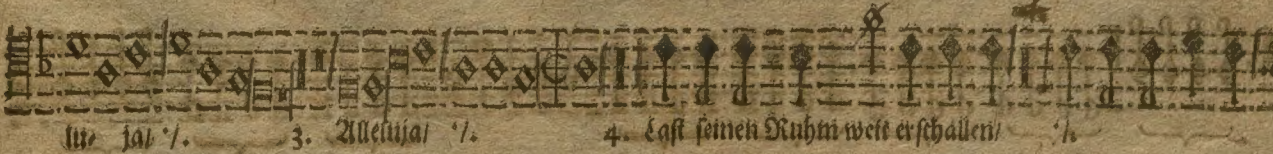 lu⸗ ja/ ·/. 3. Alleluja/ ·/. 4. Laſt ſeinen Ruhm weit erſchallen/ ·/.